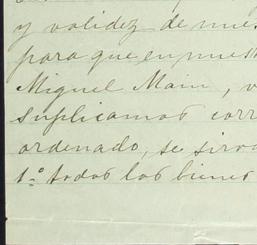 y validez de nues
para que en nuest
Miguel Main, v
suplicamos corr
ordenado, se sirva
1º todos los bienes